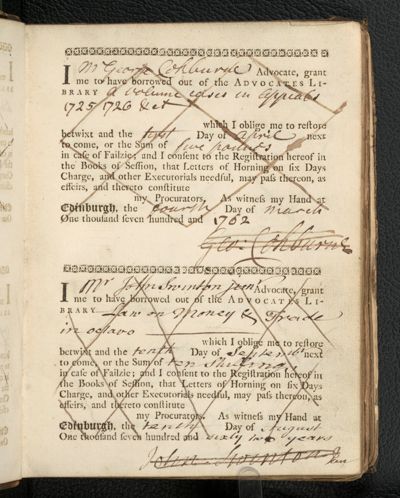 I Mr George Cockburne Advocate, grant
me to have borrowed out of the ADVOCATES LI-
BRARY a volume of
1725 1726 &ct
which I oblige me to restore
betwixt and the first Day of April next
to come, or the Sum of five pounds
in case of Failzie; and I consent to the Registration hereof in
the Books of Session, that Letters of Horning on six Days
Charge, and other Executorials needful, may pass thereon, as
effeirs, and thereto constitute
my Procurators. As witness my Hand at
Edinburgh, the fourth Day of March
One thousand seven hundred and 1762
Geo: Cockburne
I Mr John Swinton junr Advocate, grant
me to have borrowed out of the ADVOCATES LI-
BRARY Law on Money & Trade
in octavo
which I oblige me to restore
betwixt and the tenth Day of Septembr next
to come, or the Sum of ten shillings
in case of Failzie; and I consent to the Registration hereof in
the Books of Session, that Letters of Horning on six Days
Charge, and other Executorials needful, may pass thereon, as
effeirs, and thereto constitute
my Procurators. As witness my Hand at
Edinburgh, the tenth Day of August
One thousand seven hundred and sixty two years
John Swinton Jun